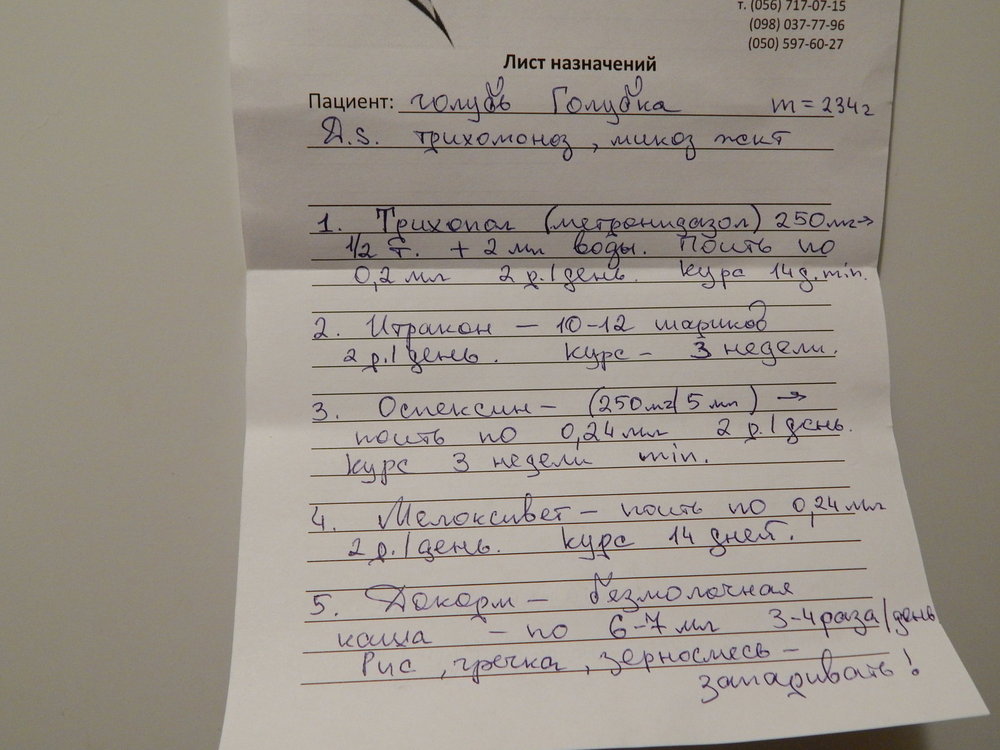 т. (056) 717-07-15
(098) 037-77-96
(050) 597-60-27
Лист назначений
Пациент: голубь Голубка m = 234г
D.s. трихомоноз, микоз жкт
1. Трихопол (метронидазол) 250мг→
1/2 т. + 2 мл воды. Поить по
0,2 мл 2 р./день. Курс 14 д. min.
2. Итракон – 10-12 шариков
2 р./день. Курс – 3 недели.
3. Оспексин – (250мг/5мл) →
поить по 0,24 мл 2 р./день.
Курс 3 недели min.
4. Мелоксивет – поить по 0,24 мл
2 р./день. Курс 14 дней!
5. Докорм – безмолочная
каша – по 6-7 мл 3-4 раза/день
Рис, гречка, зерносмесь –
запаривать!